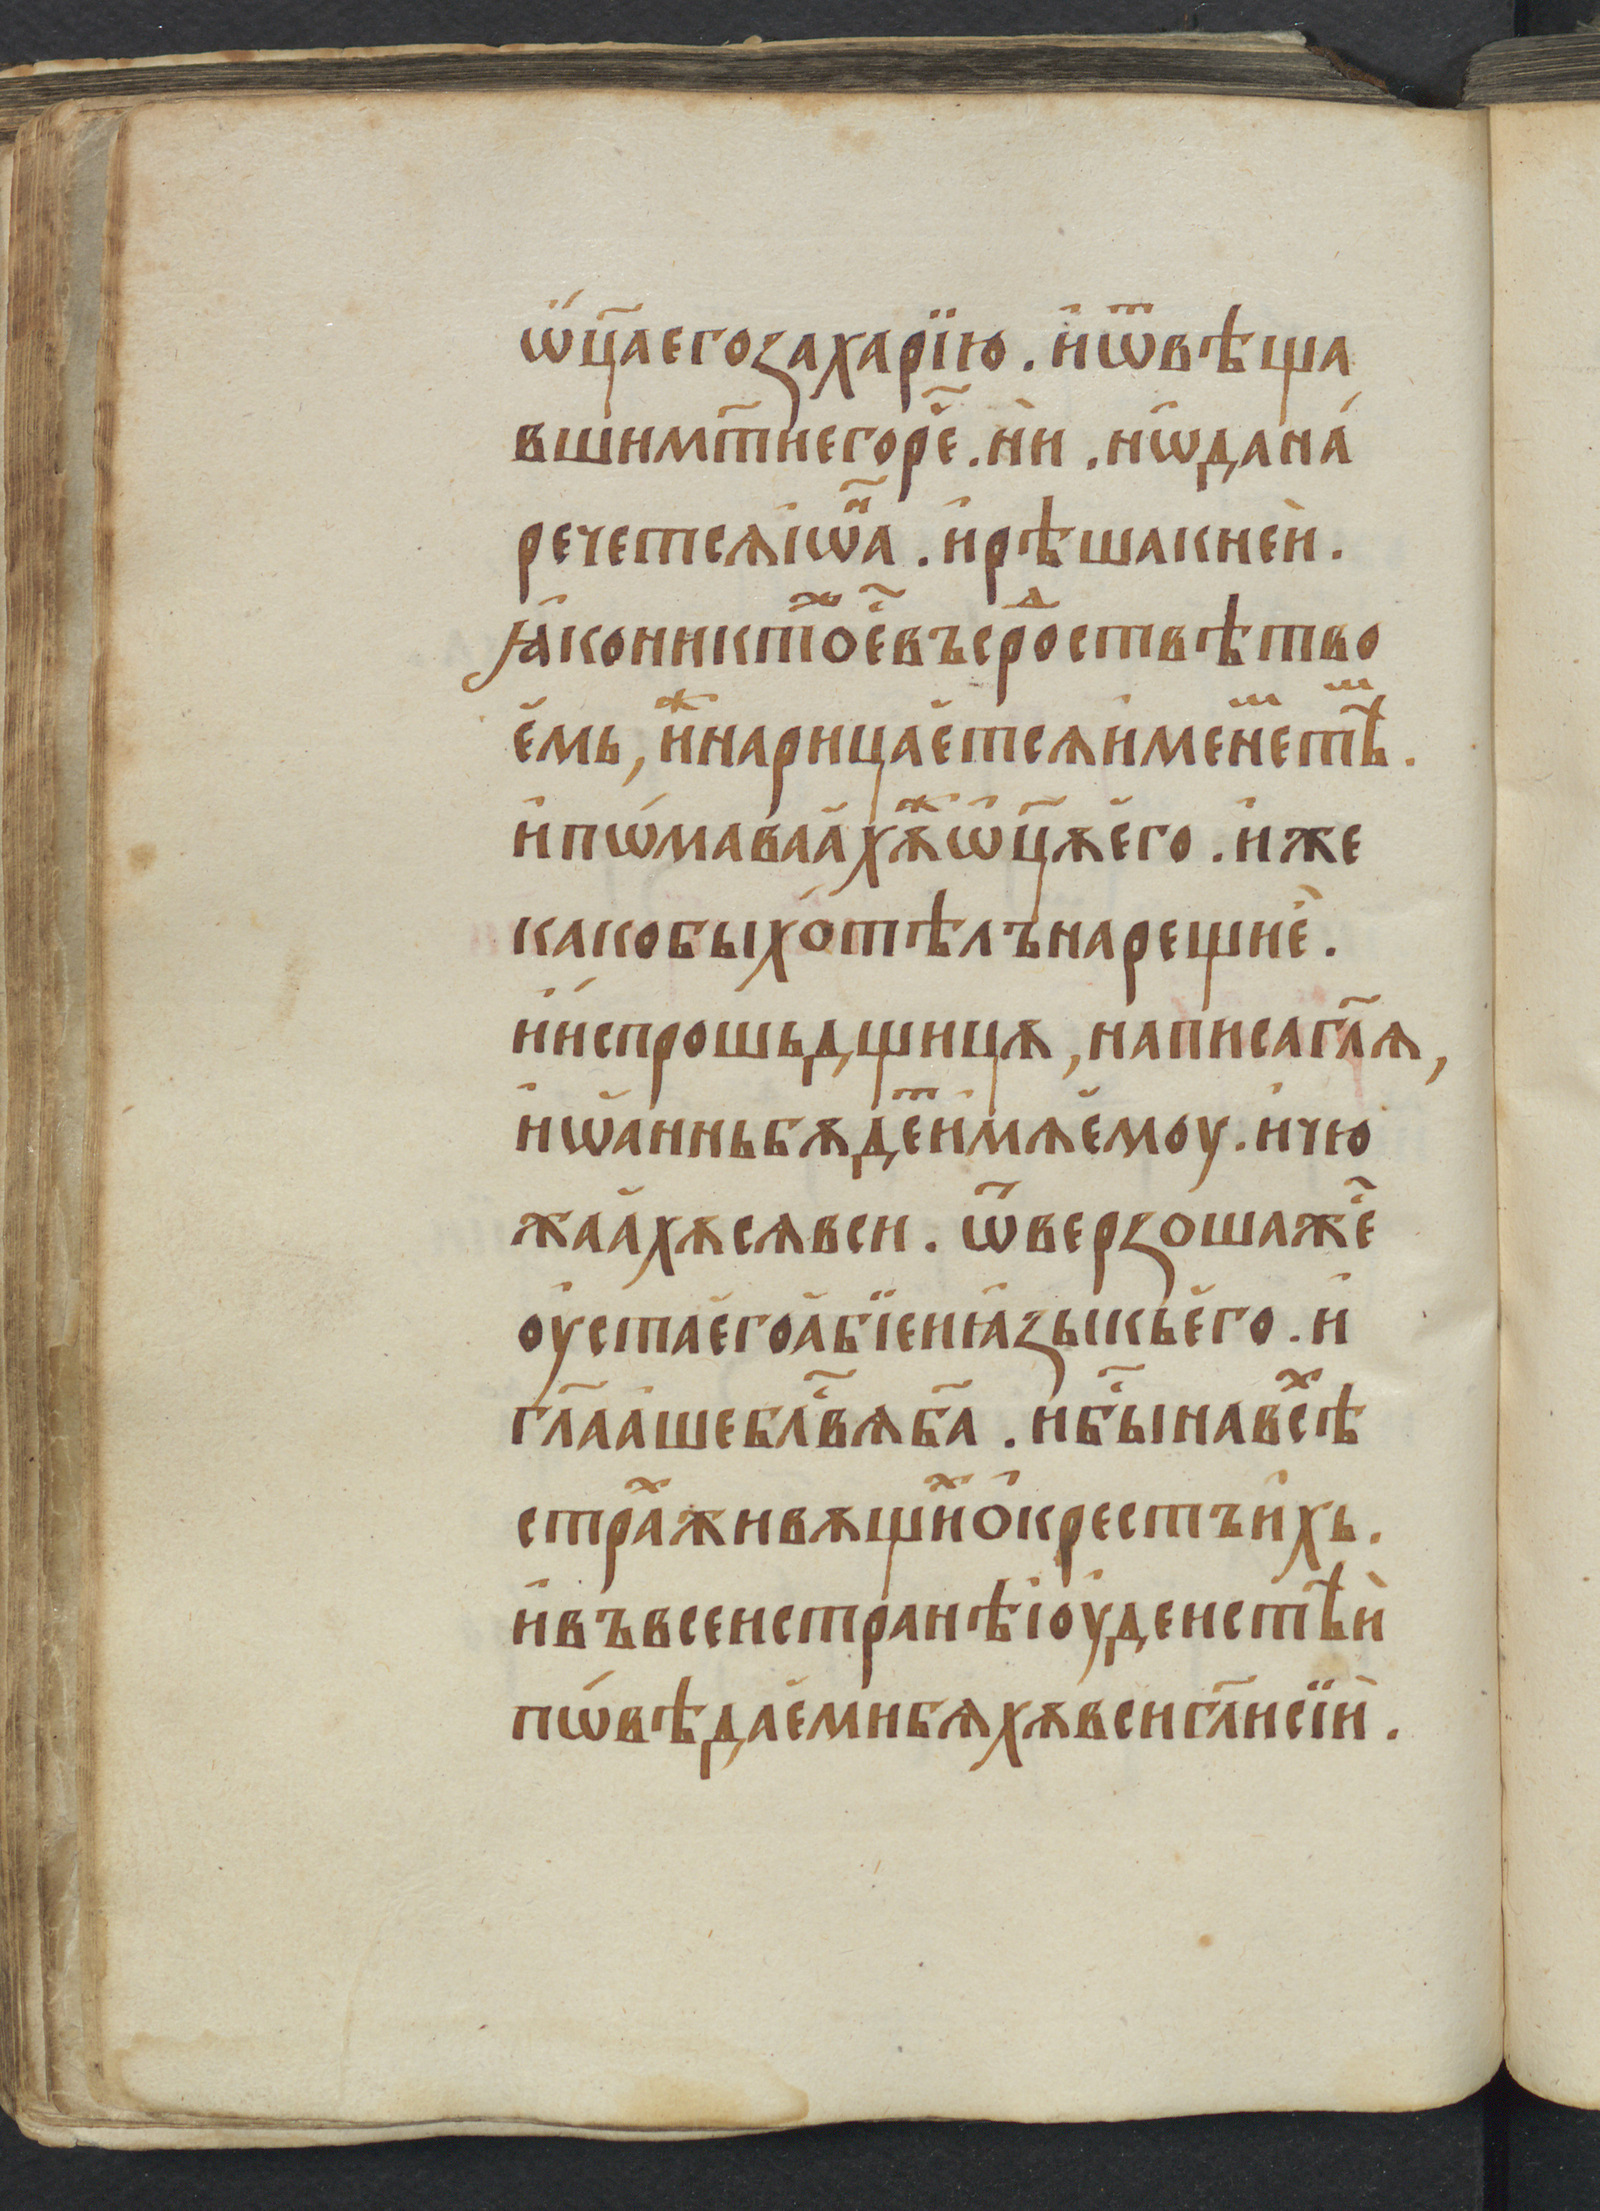 ѡ҆́ц҃а его захарїю . и҆ ѿвѣща
вши мт҃и его рⷱ҇е . нѝ . нѡ да на́
речетсѧ і҆ѡ҃ⷩ҇а . и҆ рѣша к неѝ .
ꙗ҆ко никтоⷤ е҇҃ въ сроⷣствѣ тво
е҆мь , иⷤ нарицае҆тсѧ и҆менеⷨ тѣⷨ .
и҆ пѡ́маваа҆хѫⷤ ѡ҆ц҃ѫ е҆го . и҆же
како бы хо́тѣлъ нарещѝ е .
и҆ и҆́спрошь дщицѫ , написа гл҃ѧ ,
и҆ѡ҆аннь бѫдеⷮ и҆мѧ е҆моу . и҆ чю
жаа҆хѫсѧ вси . ѿверзоша жⷭ҇е
оу҆ста е҆го а҆бїе и ꙗ҆зыкь е҆го . и҆
гл҃аа҆ше блⷭ҇вѧ б҃а . и бⷭ҇ы на всѣⷯ
страⷯ живѫщиⷯ о҆кресть и҆хь .
и҆ въ всеи странѣ і҆оу҆деистѣѝ
пѡ́вѣдае҆ми бѧхѫ вси гл҃и сїѝ .